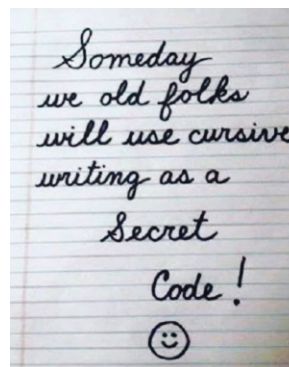 Someday
we old folks
will use cursive
writing as a
Secret
Code!